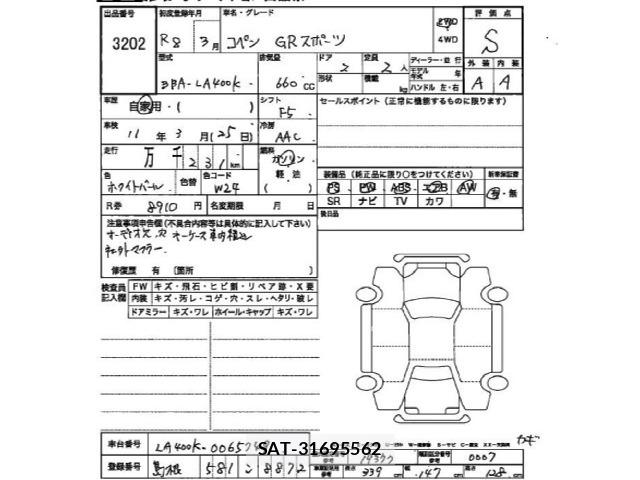 出品番号 初度登録年月 車名・グレード 評価点
3202 R8 年 3月 コペン GRスポーツ 2WD 4WD S
型式 排気量 ドア 定員 ディーラー・並行 外装 内装
3BA-LA400K 660cc 2 2人 モデル 年 A A
形状 積載 kg ハンドル 左・右
車歴 自家用・( ) シフト F5 セールスポイント (正常に機能するものに限ります)
車検 11年 3月(25日) 冷房 AAC
走行 万 千 231km 燃料 ガソリン・軽・法( )
装備品 (純正品に限り○をつけてください) 新車保証書
色 ホワイトパール 色替 色コード W24
PS PW ABS エアB AW 有・無
SR ナビ TV カワ
R券 8910円 名変期限 月 日
後日品
注意事項申告欄 (不具合内容等は具体的に記入して下さい)
オーディオ欠 穴
修復歴 有 〔箇所 〕
検査員記入欄
FW キズ・飛石・ヒビ割・リペア跡・X要
内装 キズ・汚レ・コゲ・穴・スレ・ヘタリ・破レ
ドアミラー キズ・ワレ ホイール・キャップ キズ・ワレ
カギ
車台番号 LA400K-0065
SAT-31695562
0007
登録番号 島根 581 8872
長さ 339 幅 147 高さ 128